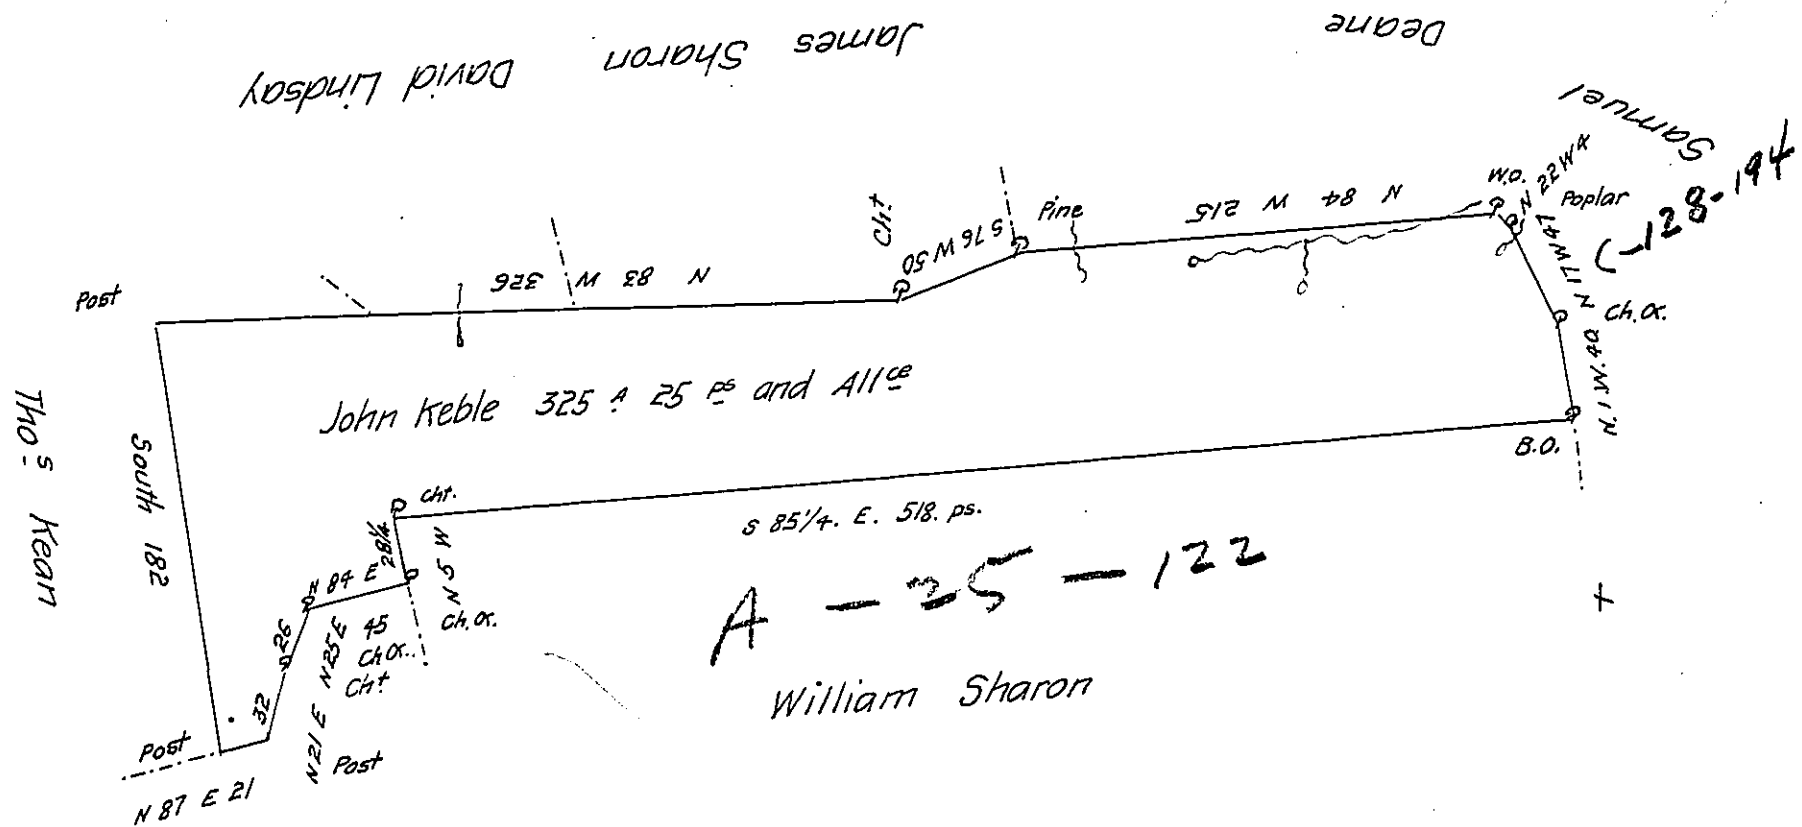 David Lindsay
James Sharon
Samuel Deane
C-128-194
Post
N 83 W 326
Cht
S 76 W 50
Pine
N 84 W 215
W.O.
N 22 W 4
Poplar
N 17 W 47
Ch.O.
N.1W.40
B.O.
Thos Kean
South 182
John Keble 325 A 25 ps and Allce
Cht.
S 85 1/4. E. 518. ps.
28 1/4
N 5 W
Ch.O.
N 84 E
45
Ch.O.
26
N 25 E
Cht
32
N 21 E
Post
Post
N 87 E 21
A - 25 - 122
William Sharon